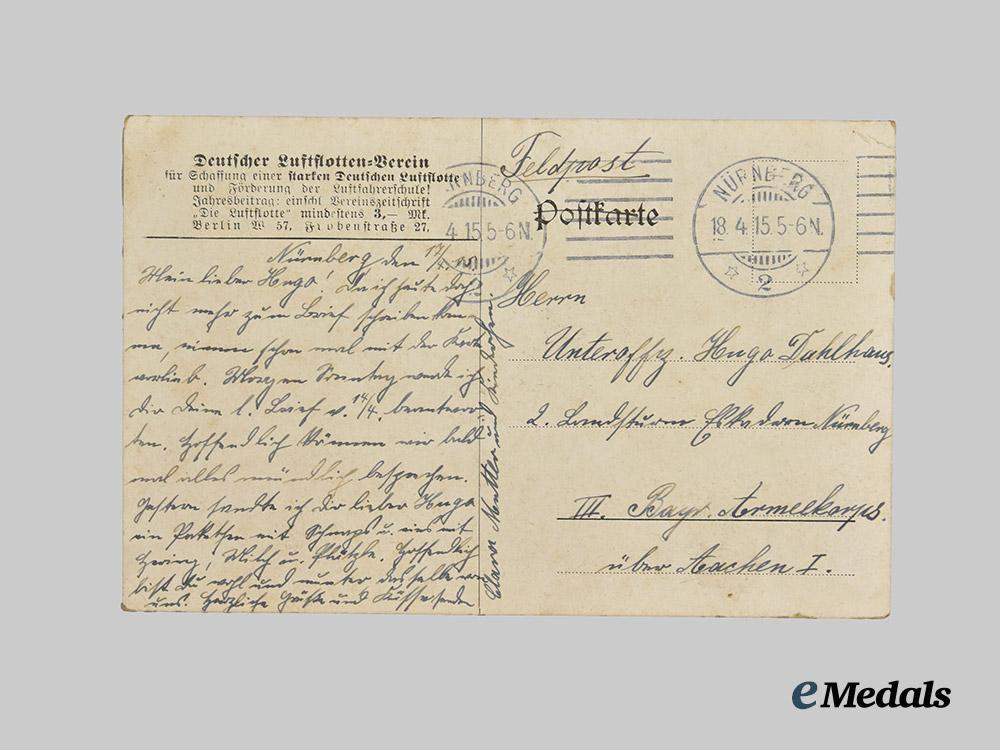 Deutscher Luftflotten=Verein
für Schaffung einer starken Deutschen Luftflotte
und Förderung der Luftfahrerschule!
Jahresbeitrag: einschl. Vereinszeitschrift
„Die Luftflotte“ mindestens 3,— Mk.
Berlin W 57, Frobenstraße 27.
Nürnberg den 17/4
Mein lieber Hugo! Da ich heute doch
nicht mehr zum Brief schreiben kom-
me, nimm schon mal mit der Karte
vorlieb. Morgen Sonntag werde ich
Dir Deine l. Brief v. 14/4 beantwor-
ten. Hoffendlich können wir bald
mal alles mündlich besprechen.
Gestern sandte ich Dir lieber Hugo
ein Paketchen mit Schnaps u. eins mit
Hering, Milch u. Plätzch. Hoffendlich
bist Du wohl und munter dasselbe von
uns. Herzliche Grüße und Küsse senden
Clara Mutter und
Feldpost
Postkarte
NÜRNBERG
4.15 5-6N.
NÜRNBERG
18.4.15.5-6N.
2
Herrn
Unteroffz. Hugo Dahlhaus.
2. Landsturm Eskadron Nürnberg
III. Bayr. Armeekorps.
über Aachen I.
eMedals